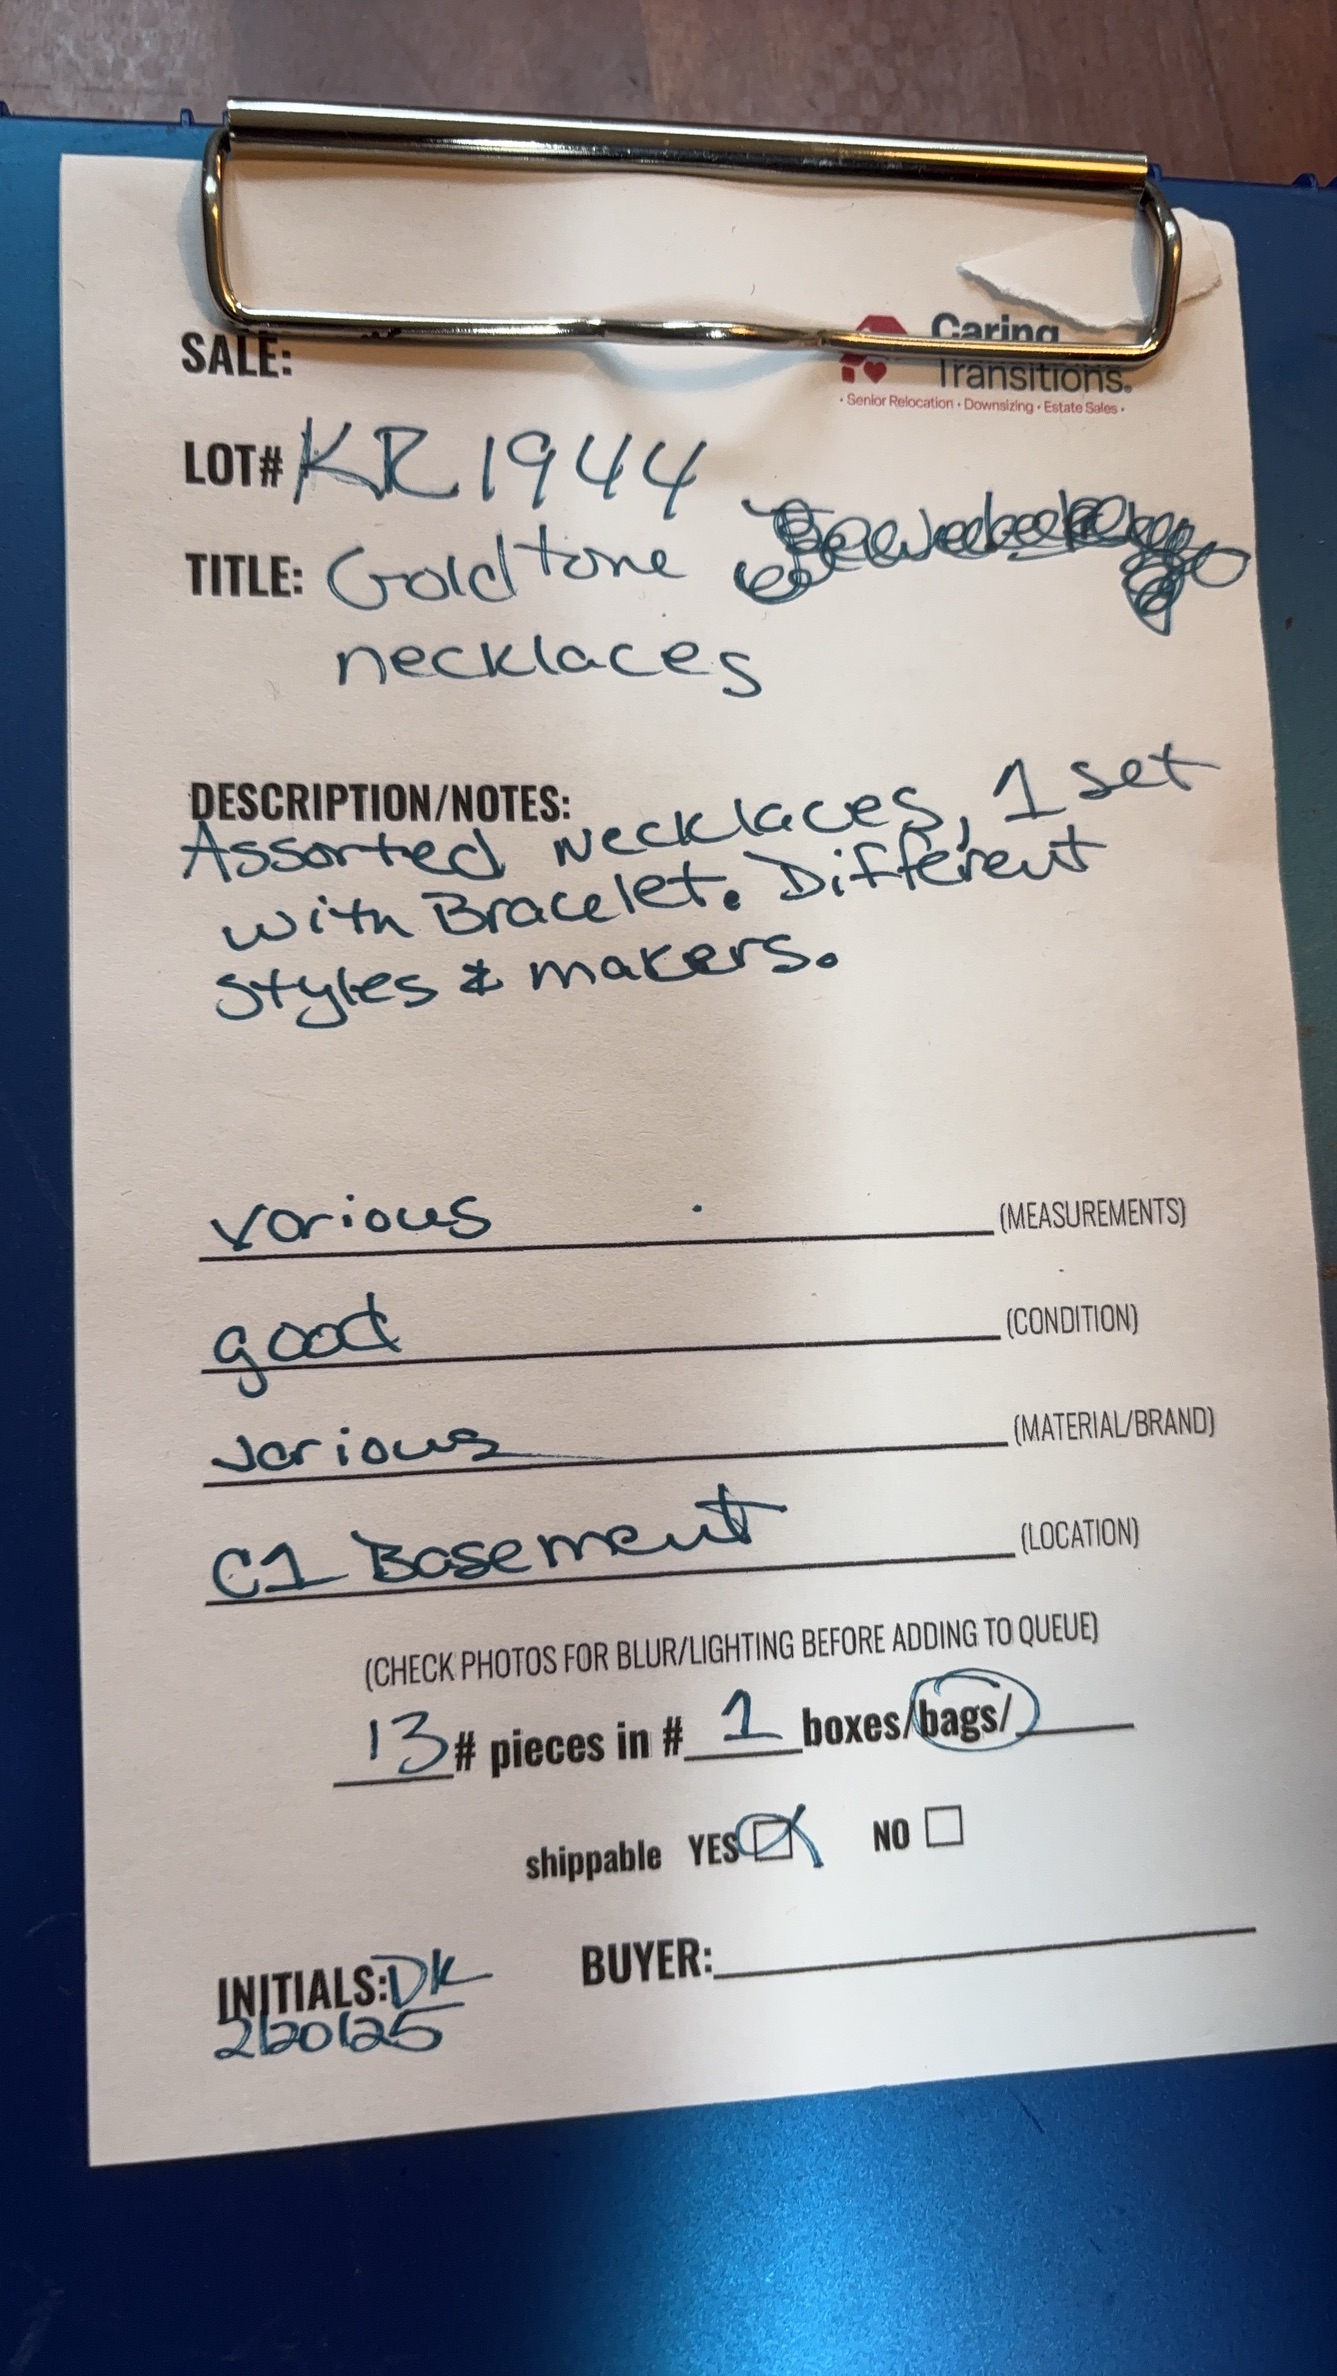 Caring
SALE:
Transitions.
• Senior Relocation • Downsizing • Estate Sales •
LOT# KR1944
TITLE: Goldtone
necklaces
DESCRIPTION/NOTES:
Assorted necklaces, 1 set
with Bracelet. Different
styles & makers.
various (MEASUREMENTS)
good (CONDITION)
various (MATERIAL/BRAND)
C1 Basement (LOCATION)
(CHECK PHOTOS FOR BLUR/LIGHTING BEFORE ADDING TO QUEUE)
13 # pieces in # 1 boxes/bags/
shippable YES NO
INITIALS: DK BUYER:
2/20/25